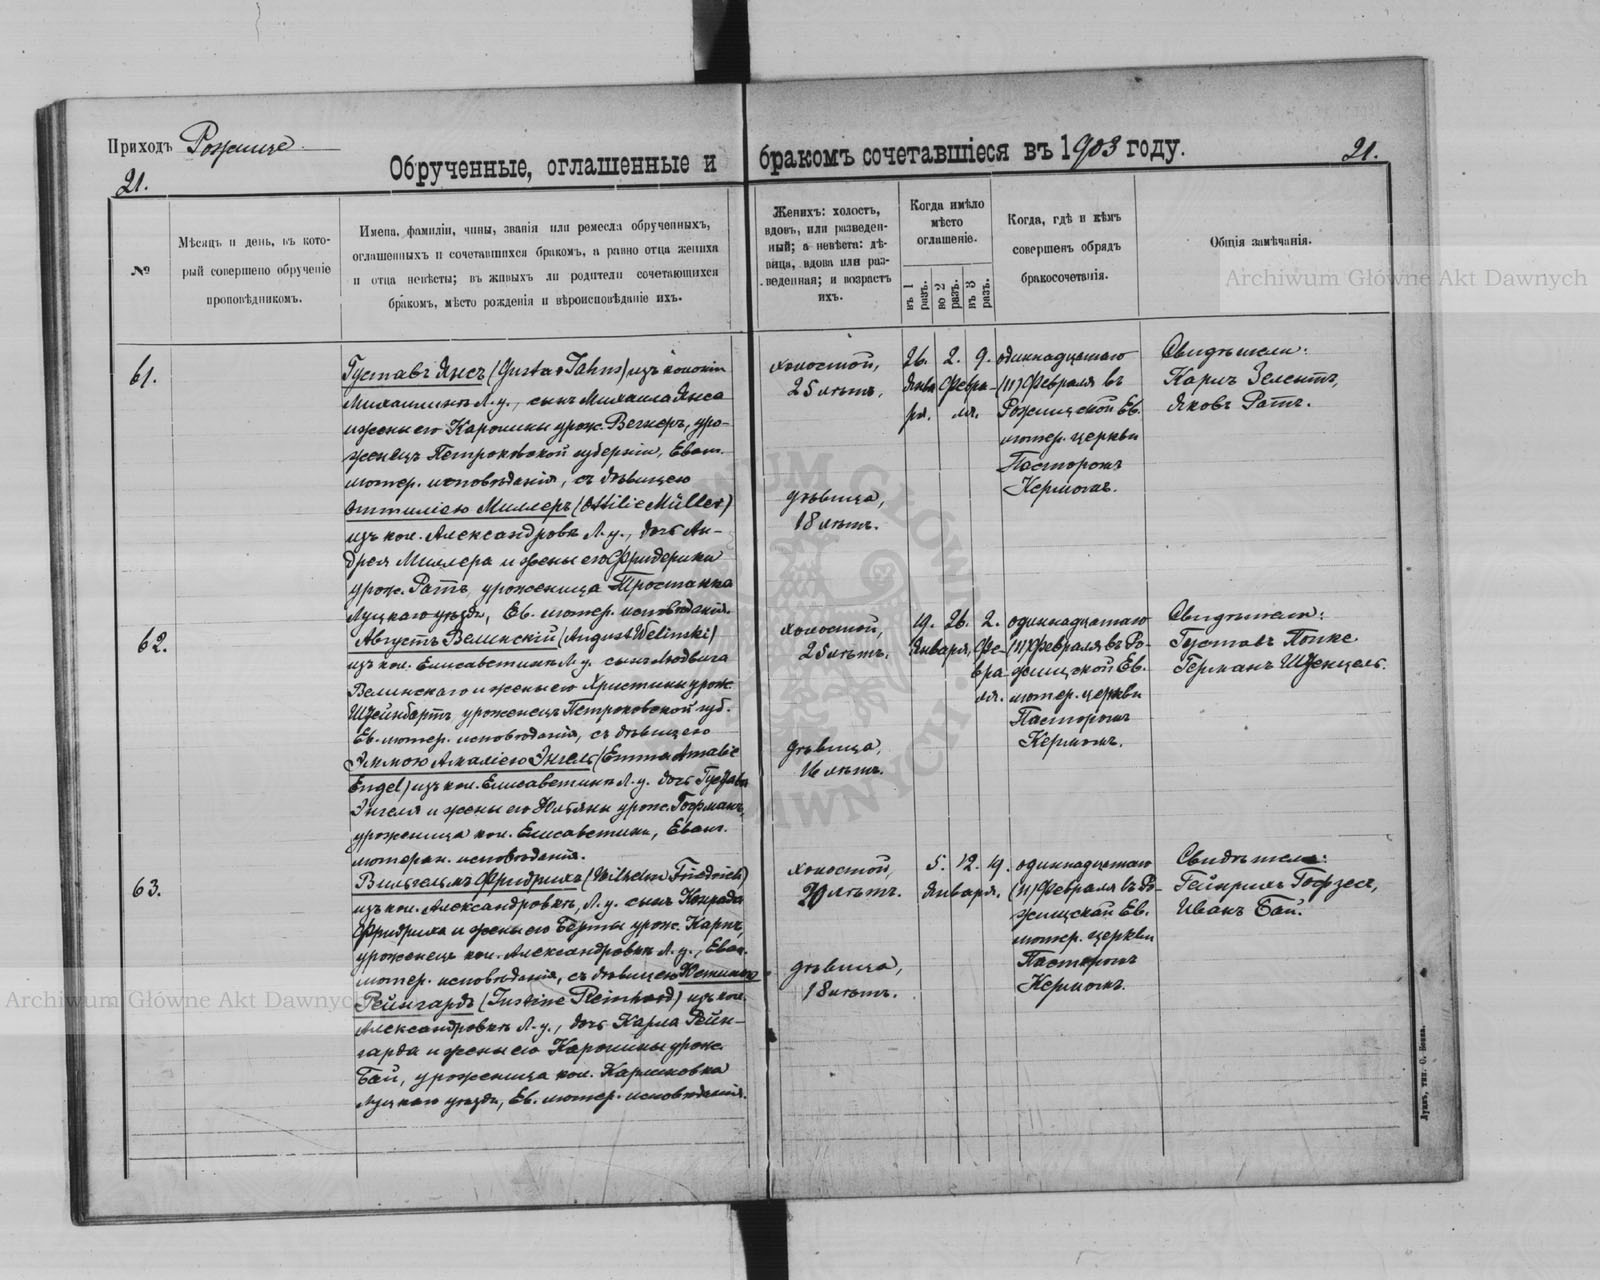 Приходъ Рожище
21.
Обрученные, оглашенные и бракомъ сочетавшіеся въ 1903 году.
21.
№
Мѣсяцъ и день, въ кото-
рый совершено обрученіе
проповѣдникомъ.
Имена, фамиліи, чины, званія или ремесла обрученныхъ,
оглашенныхъ и сочетавшихся бракомъ, а равно отца жениха
и отца невѣсты; въ живыхъ ли родители сочетающихся
бракомъ, мѣсто рожденія и вѣроисповѣданіе ихъ.
Женихъ: холостъ,
вдовъ, или разведен-
ный; а невѣста: дѣ-
вица, вдова или раз-
веденная; и возрастъ
ихъ.
Когда имѣло
мѣсто
оглашеніе.
въ 1
разъ.
во 2
разъ.
въ 3
разъ.
Когда, гдѣ и кѣмъ
совершенъ обрядъ
бракосочетанія.
Общія замѣчанія.
Archiwum Główne Akt Dawnych
61.
Густавъ Янсъ (Gustav Jahns) изъ колоніи
Михайлинъ Л. у., сынъ Михаила Янса
и жены его Каролины урож. Вегнеръ, уро-
женецъ Петроковской губерніи, Еванг.
лютер. исповѣданія, съ дѣвицею
Оттиліею Миллеръ (Ottilie Müller)
изъ кол. Александровкъ Л. у., дочь Ан-
дрея Миллера и жены его Фридерики
урож. Ратъ, уроженица Тростянка
Луцкаго уѣзда, Ев. лютер. исповѣданія.
холостой,
25 лѣтъ.
дѣвица,
18 лѣтъ.
26. 2. 9.
Янва Февра-
ря. ля.
одиннадцатаго
(11) Февраля въ
Рожищской Ев.
лютер. церкви
Пасторомъ
Кермомъ.
Свидѣтели:
Карлъ Зелентъ,
Яковъ Ратъ.
62.
Августъ Велинскій (August Welinski)
изъ кол. Елисаветинъ Л. у. сынъ Людвига
Велинскаго и жены его Христины урож.
Штейнбартъ уроженецъ Петроковской губ.
Ев. лютер. исповѣданія, съ дѣвицею
Эммою Амаліею Энгель (Emma Amalie
Engel) изъ кол. Елисаветинъ Л. у. дочь Густава
Энгеля и жены его Юльяны урож. Гофманъ,
уроженица кол. Елисаветинъ, Еванг.
лютеран. исповѣданія.
холостой,
25 лѣтъ.
дѣвица,
16 лѣтъ.
19. 26. 2.
Января, Фе-
вра-
ля.
одиннадцатаго
(11) Февраля въ Ро-
жищской Ев.
лютер. церкви
Пасторомъ
Кермомъ.
Свидѣтели:
Густавъ Ппике
Германъ Штенцель.
63.
Вильгельмъ Фридрихъ (Wilhelm Friedrich)
изъ кол. Александровкъ, Л. у. сынъ Конрада
Фридриха и жены его Берты урож. Карпъ,
уроженецъ кол. Александровкъ Л. у., Еван.
лютер. исповѣданія, съ дѣвицею Юстиною
Рейнгардъ (Justine Reinhard) изъ кол.
Александровкъ Л. у., дочь Карла Рейн-
гарда и жены его Каролины урож.
Бай, уроженица кол. Карлиховка
Луцкаго уѣзда, Ев. лютер. исповѣданія.
холостой,
20 лѣтъ.
дѣвица,
18 лѣтъ.
5. 12. 19.
Января.
одиннадцатаго
(11) Февраля въ Ро-
жищской Ев.
лютер. церкви
Пасторомъ
Кермомъ.
Свидѣтели:
Гейнрихъ Гофзесъ,
Иванъ Бай.
Archiwum Główne Akt Dawnych